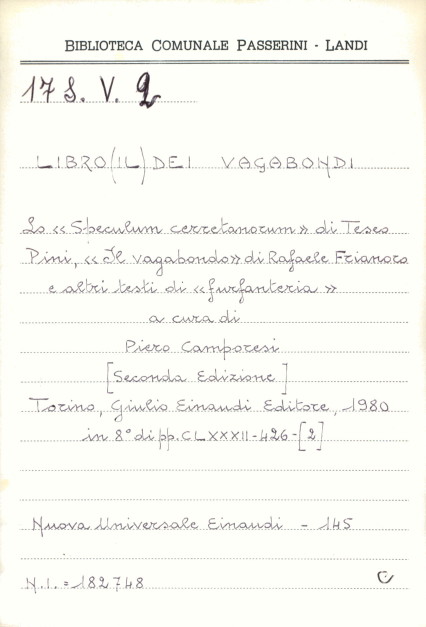 BIBLIOTECA COMUNALE PASSERINI - LANDI
17 S. V. 2
LIBRO (IL) DEI VAGABONDI
Lo « Speculum cerretanorum » di Teseo
Pini, « Il vagabondo » di Rafaele Frianoro
e altri testi di « furfanteria »
a cura di
Piero Camporesi
[Seconda Edizione]
Torino, Giulio Einaudi Editore, 1980
in 8° di pp. CLXXXII-426-[2]
Nuova Universale Einaudi - 145
N.I. = 182748